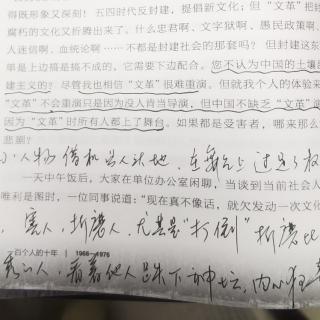 得既形象又深刻！五四时代反封建，提倡新文化；但"文革"把封
腐朽的文化又折腾出来了。什么忠君啊、文字狱啊、愚民政策啊、
人迷信啊、血统论啊……不都是封建社会的那套吗？但封建这东
单是上边搞是搞不成的，它需要下边配合。您不认为中国的土壤
建主义的？尽管我也相信"文革"很难重演。但就我个人的体验来
"文革"不会重演只是因为没人肯当导演，但中国不缺乏"文革"演
因为"文革"时所有人都上了舞台。如果都是受害者，哪来那么
悲剧？
小人物借机
一天中午饭后，大家在单位办公室闲聊，当谈到当前社会人
唯利是图时，一位同事说道："现在真不像话，就欠发动一次文化
害人，折磨人，尤其是"打倒"折磨比
一百个人的十年 1966—1976
的人，看着他人跌下神坛，内心狂